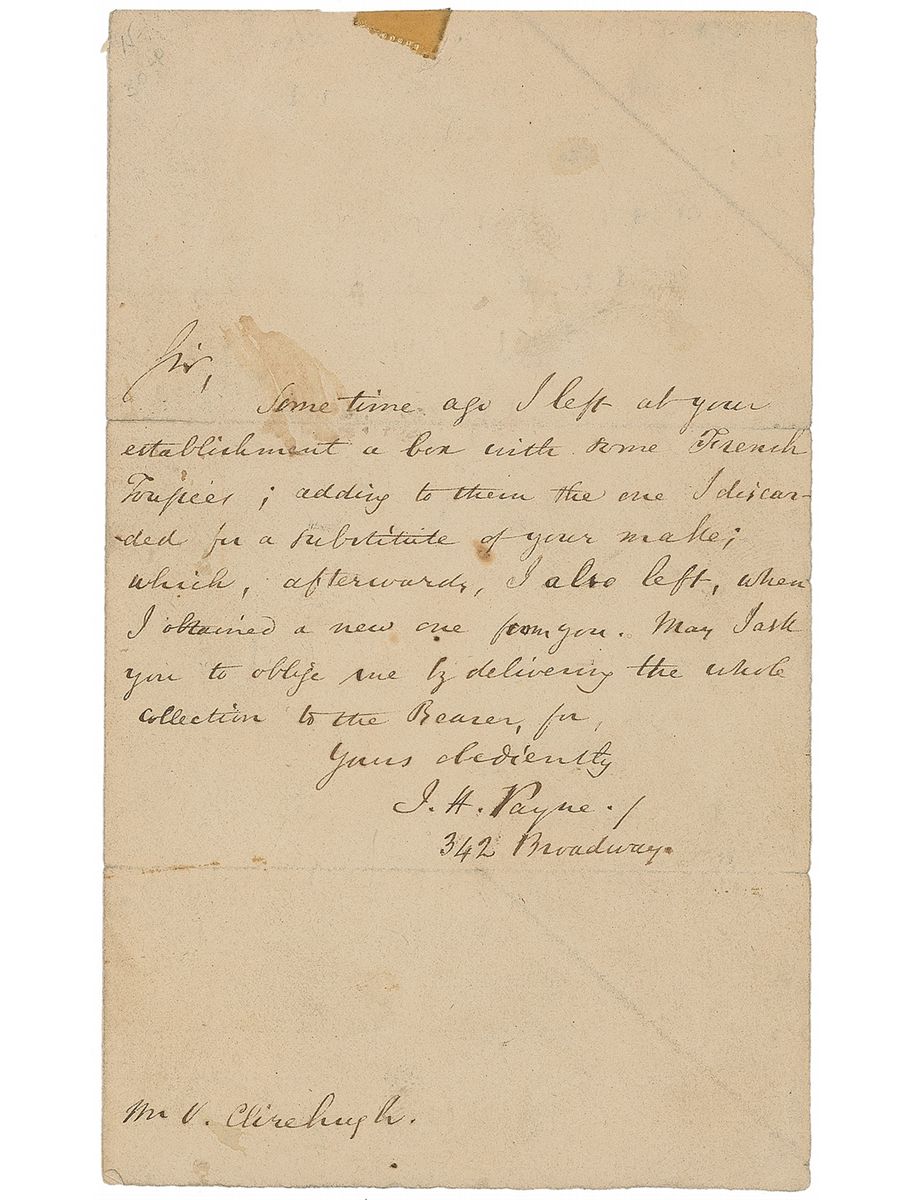 Sir,
Some time ago I left at your
establishment a box with some French
Toupées ; adding to them the one I discar-
ded for a substitute of your make ;
which, afterwards, I also left, when
I obtained a new one from you. May I ask
you to oblige me by delivering the whole
collection to the Bearer, for,
Yours obediently
J. H. Payne.
342 Broadway.
Mr V. Clirehugh.